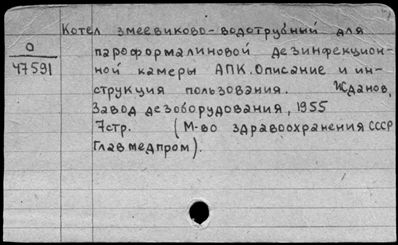 Котел змеевиково-водотрубный для
О
47591
пароформалиновой дезинфекцион-
ной камеры АПК. Описание и ин-
струкция пользования. Жданов,
Завод дезоборудования, 1955
7стр. (М-во здравоохранения СССР
Главмедпром).